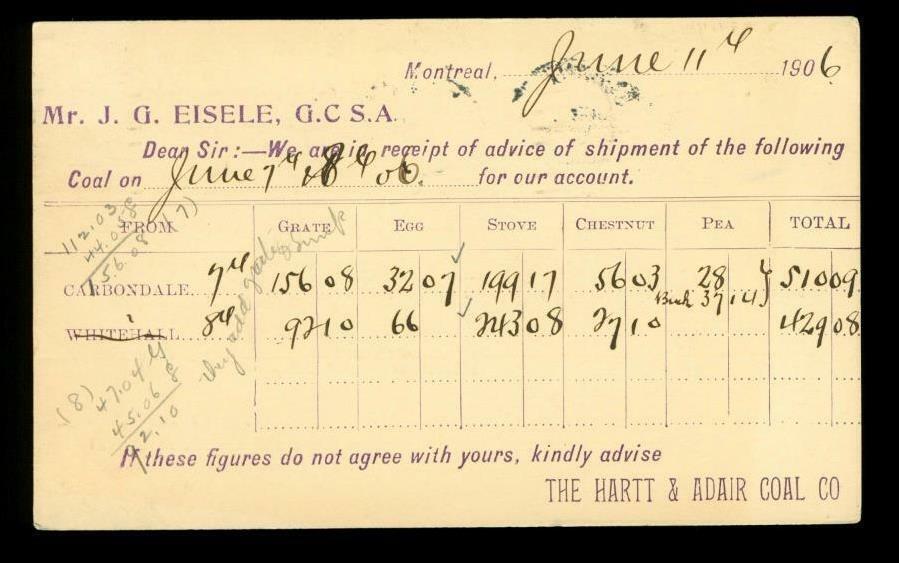 Montreal, June 11th 1906.
Mr. J. G. EISELE, G.C S.A.
Dear Sir:—We are in receipt of advice of shipment of the following
Coal on June 7th 8th 06. for our account.
FROM GRATE EGG STOVE CHESTNUT PEA TOTAL
CARBONDALE 7th 156 08 32 07 199 17 56 03 28 510 09
Buck 37 14
WHITEHALL 8th 92 10 66 243 08 27 10 429 08
112.03
44.05
156.08 (7)
(8) 47.04
45.06
92.10
If these figures do not agree with yours, kindly advise
THE HARTT & ADAIR COAL CO